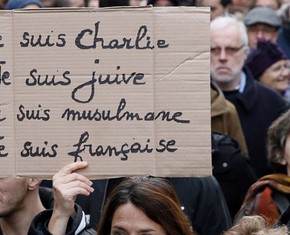 Je suis Charlie
Je suis juive
Je suis musulmane
Je suis française